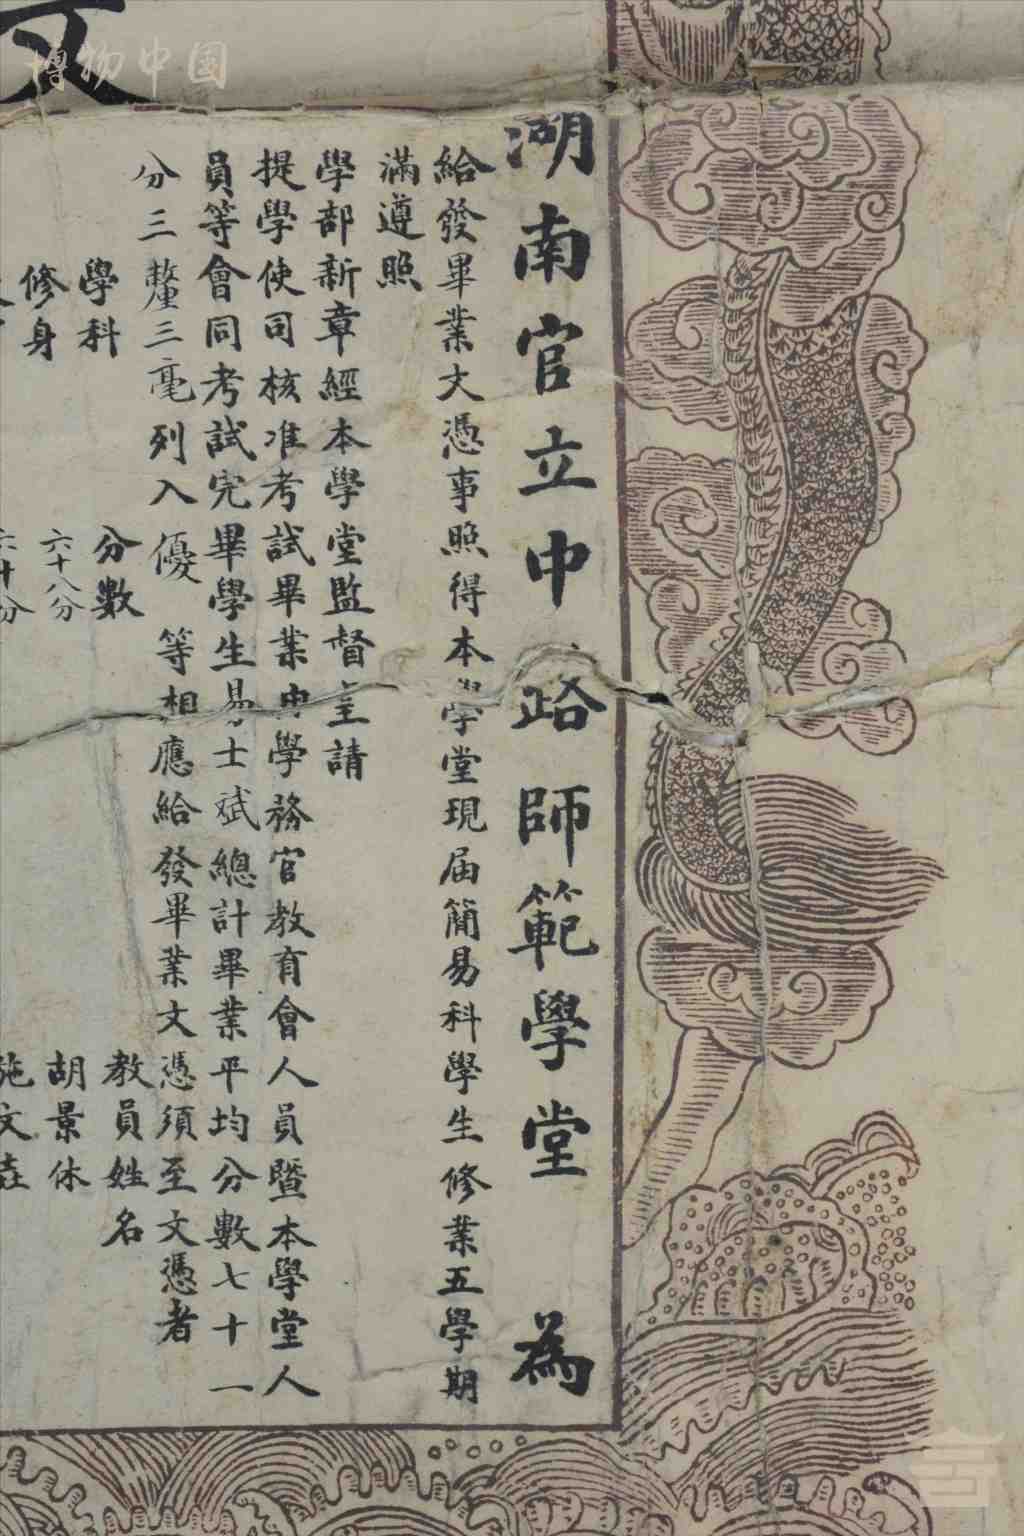 博物中国
湖南官立中路師範學堂 為
給發畢業文憑事照得本學堂現届簡易科學生修業五學期
滿遵照
學部新章經本學堂監督呈請
提學使司核准考試畢業由學務官教育會人員暨本學堂人
員等會同考試完畢學生易士斌總計畢業平均分數七十一
分三釐三毫列入優等相應給發畢業文憑須至文憑者
學科 分數 教員姓名
修身 六十八分 胡景休
六十分 施文垚